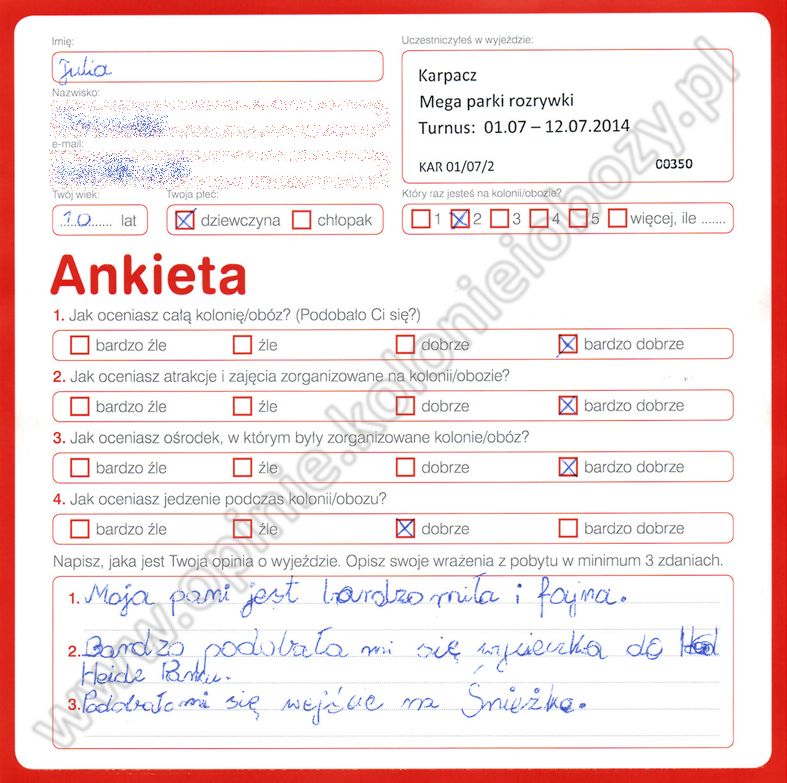 Imię:
Julia
Nazwisko:
e-mail:
Twój wiek:
10 lat
Twoja płeć:
dziewczyna chłopak
Uczestniczyłeś w wyjeździe:
Karpacz
Mega parki rozrywki
Turnus: 01.07 – 12.07.2014
KAR 01/07/2 00350
Który raz jesteś na kolonii/obozie?
1 2 3 4 5 więcej, ile .......
Ankieta
1. Jak oceniasz całą kolonię/obóz? (Podobało Ci się?)
bardzo źle źle dobrze bardzo dobrze
2. Jak oceniasz atrakcje i zajęcia zorganizowane na kolonii/obozie?
bardzo źle źle dobrze bardzo dobrze
3. Jak oceniasz ośrodek, w którym były zorganizowane kolonie/obóz?
bardzo źle źle dobrze bardzo dobrze
4. Jak oceniasz jedzenie podczas kolonii/obozu?
bardzo źle źle dobrze bardzo dobrze
Napisz, jaka jest Twoja opinia o wyjeździe. Opisz swoje wrażenia z pobytu w minimum 3 zdaniach.
1. Moja pani jest bardzo miła i fajna.
2. Bardzo podobała mi się wycieczka do
Heide Parku.
3. Podobało mi się wejście na Śnieżkę.
www.opinie.kolonieiobozy.pl